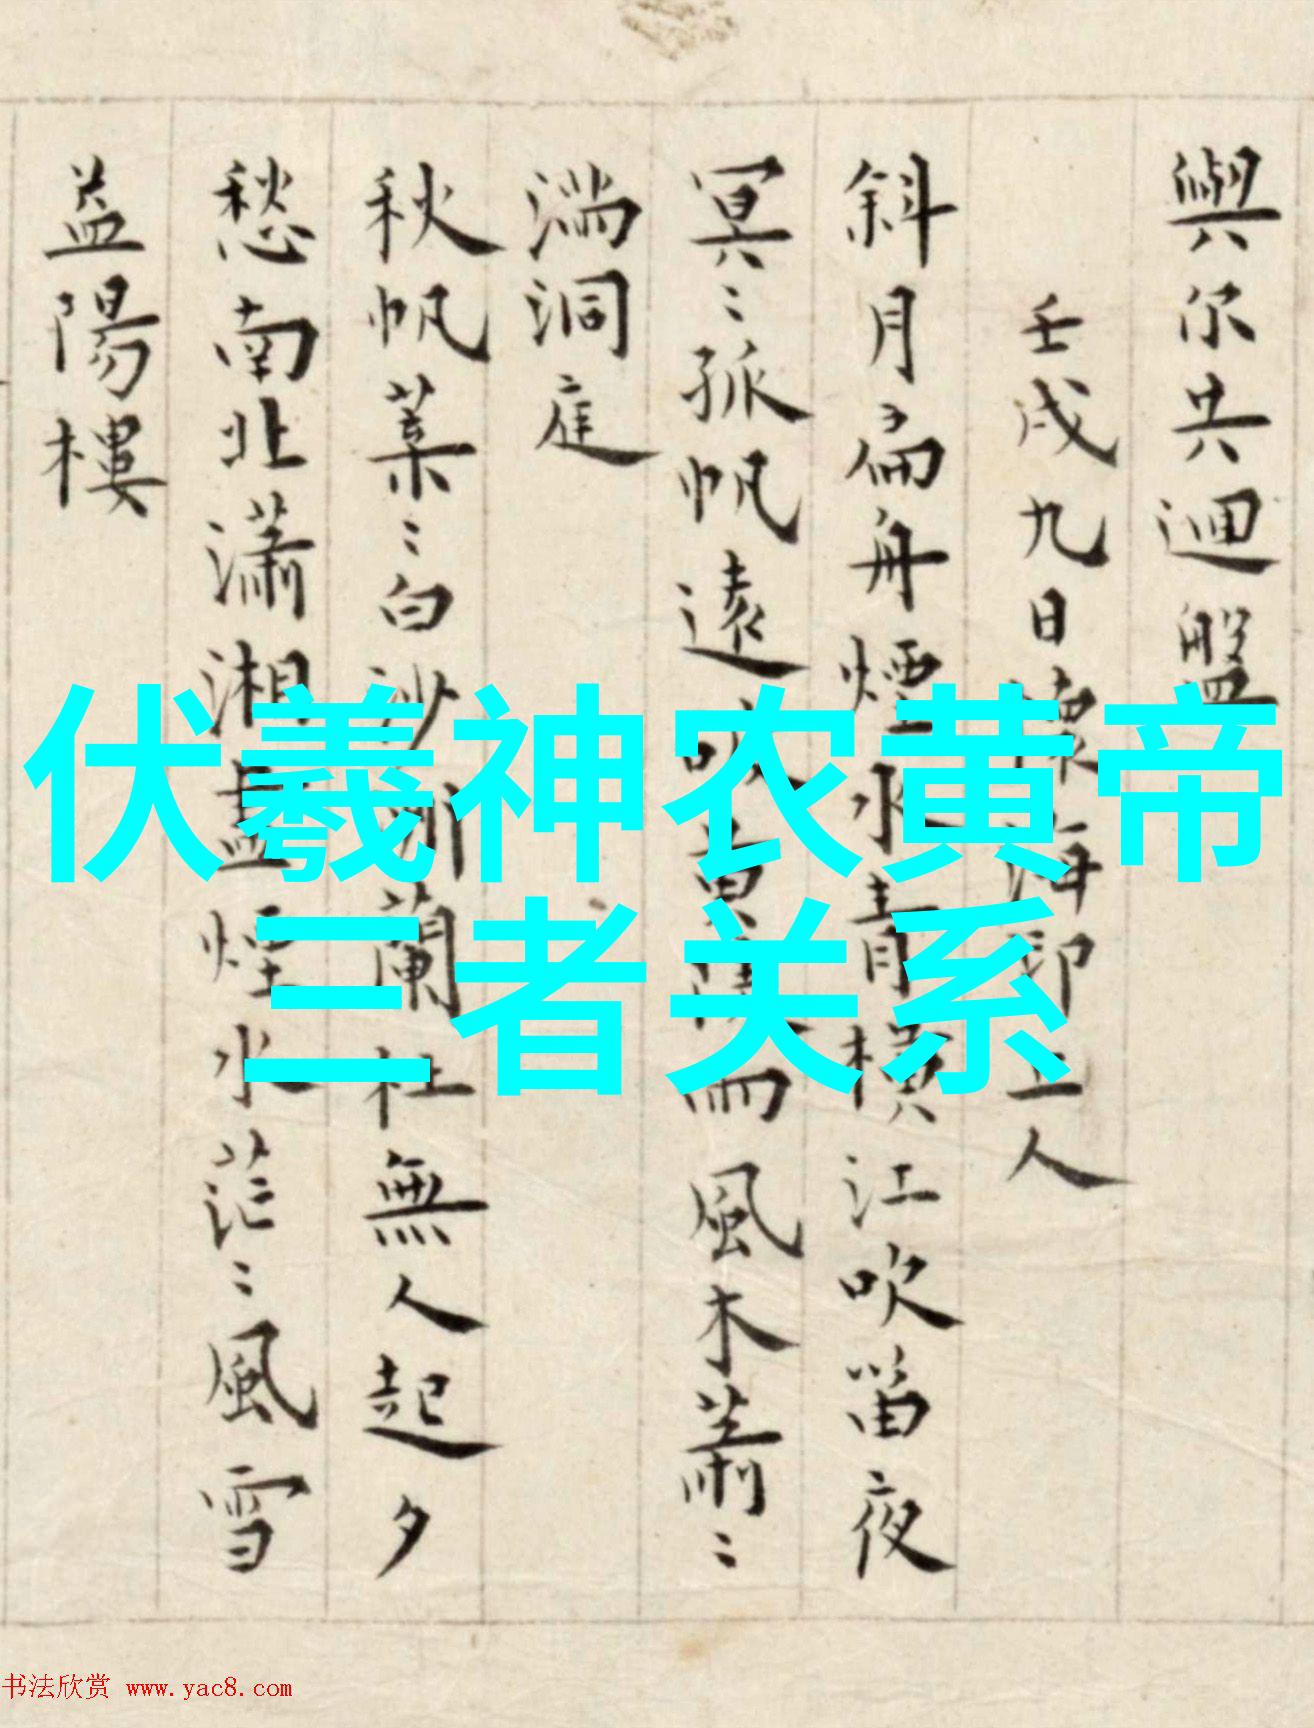 與尔共迴盤
壬戌九日 海印上人
斜月扁舟煙水青橫江吹笛夜
冥〻孤帆遠 風木蕭〻
湍洞庭
秋帆葉〻白沙 蘭杜無人起夕
愁南北瀟湘盡煙水茫〻風雪
益陽樓
伏羲神农黄帝
三者关系
书法欣赏 www.yac8.com